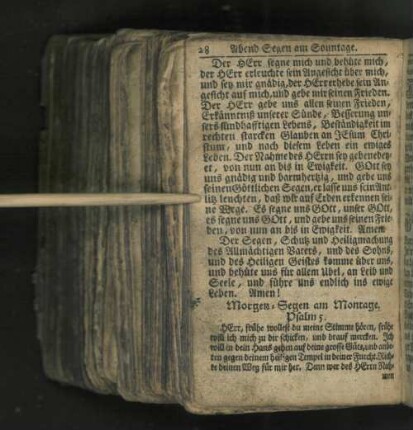 28 Abend Segen am Sonntage.
Der HErr segne mich und behüte mich,
der HErr erleuchte sein Angesicht über mich,
und sey mir gnädig, der HErr erhebe sein An-
gesicht auf mich, und gebe mir seinen Frieden.
Der HErr gebe uns allen seinen Frieden,
Erkänntniß unserer Sünde, Besserung un-
sers sündhafftigen Lebens, Beständigkeit im
rechten starcken Glauben an JEsum Chri-
stum, und nach diesem Leben ein ewiges
Leben. Der Nahme des HErrn sey gebenedey-
et, von nun an bis in Ewigkeit. GOtt sey
uns gnädig und barmhertzig, und gebe uns
seinen Göttlichen Segen, er lasse uns sein Ant-
litz leuchten, daß wir auf Erden erkennen sei-
ne Wege. Es segne uns GOtt, unser GOtt,
es segne uns GOtt, und gebe uns seinen Frie-
den, von nun an bis in Ewigkeit. Amen
Der Segen, Schutz und Heiligmachung
des Allmächtigen Vaters, und des Sohns,
und des Heiligen Geistes komme über uns,
und behüte uns für allem Übel, an Leib und
Seele, und führe uns endlich ins ewige
Leben. Amen!
Morgen-Segen am Montage.
Psalm 5.
HErr, frühe wollest du meine Stimme hören, frühe
will ich mich zu dir schicken, und drauf mercken. Ich
will in dein Haus gehen auf deine grosse Güte, und anbe-
ten gegen deinem heiligen Tempel in deiner Furcht. Rich-
te deinen Weg für mir her. Denn wer des HErrn Nah-
men